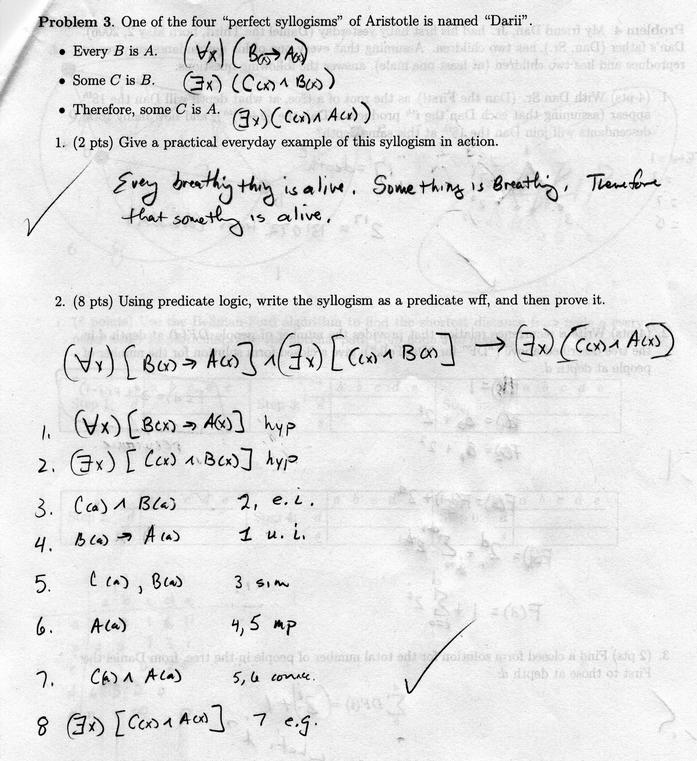 Problem 3. One of the four “perfect syllogisms” of Aristotle is named “Darii”.
• Every B is A. (∀x) (B(x)→A(x))
• Some C is B. (∃x) (C(x) ∧ B(x))
• Therefore, some C is A. (∃x) (C(x) ∧ A(x))
1. (2 pts) Give a practical everyday example of this syllogism in action.
Every breathing thing is alive. Something is Breathing, Therefore
that something is alive.
2. (8 pts) Using predicate logic, write the syllogism as a predicate wff, and then prove it.
(∀x) [B(x) → A(x)] ∧ (∃x) [C(x) ∧ B(x)] → (∃x) [C(x) ∧ A(x)]
1. (∀x) [B(x) → A(x)] hyp
2. (∃x) [C(x) ∧ B(x)] hyp
3. C(a) ∧ B(a) 2, e.i.
4. B(a) → A(a) 1 u.i.
5. C(a), B(a) 3 sim
6. A(a) 4,5 mp
7. C(a) ∧ A(a) 5,6 conn.
8 (∃x) [C(x) ∧ A(x)] 7 e.g.